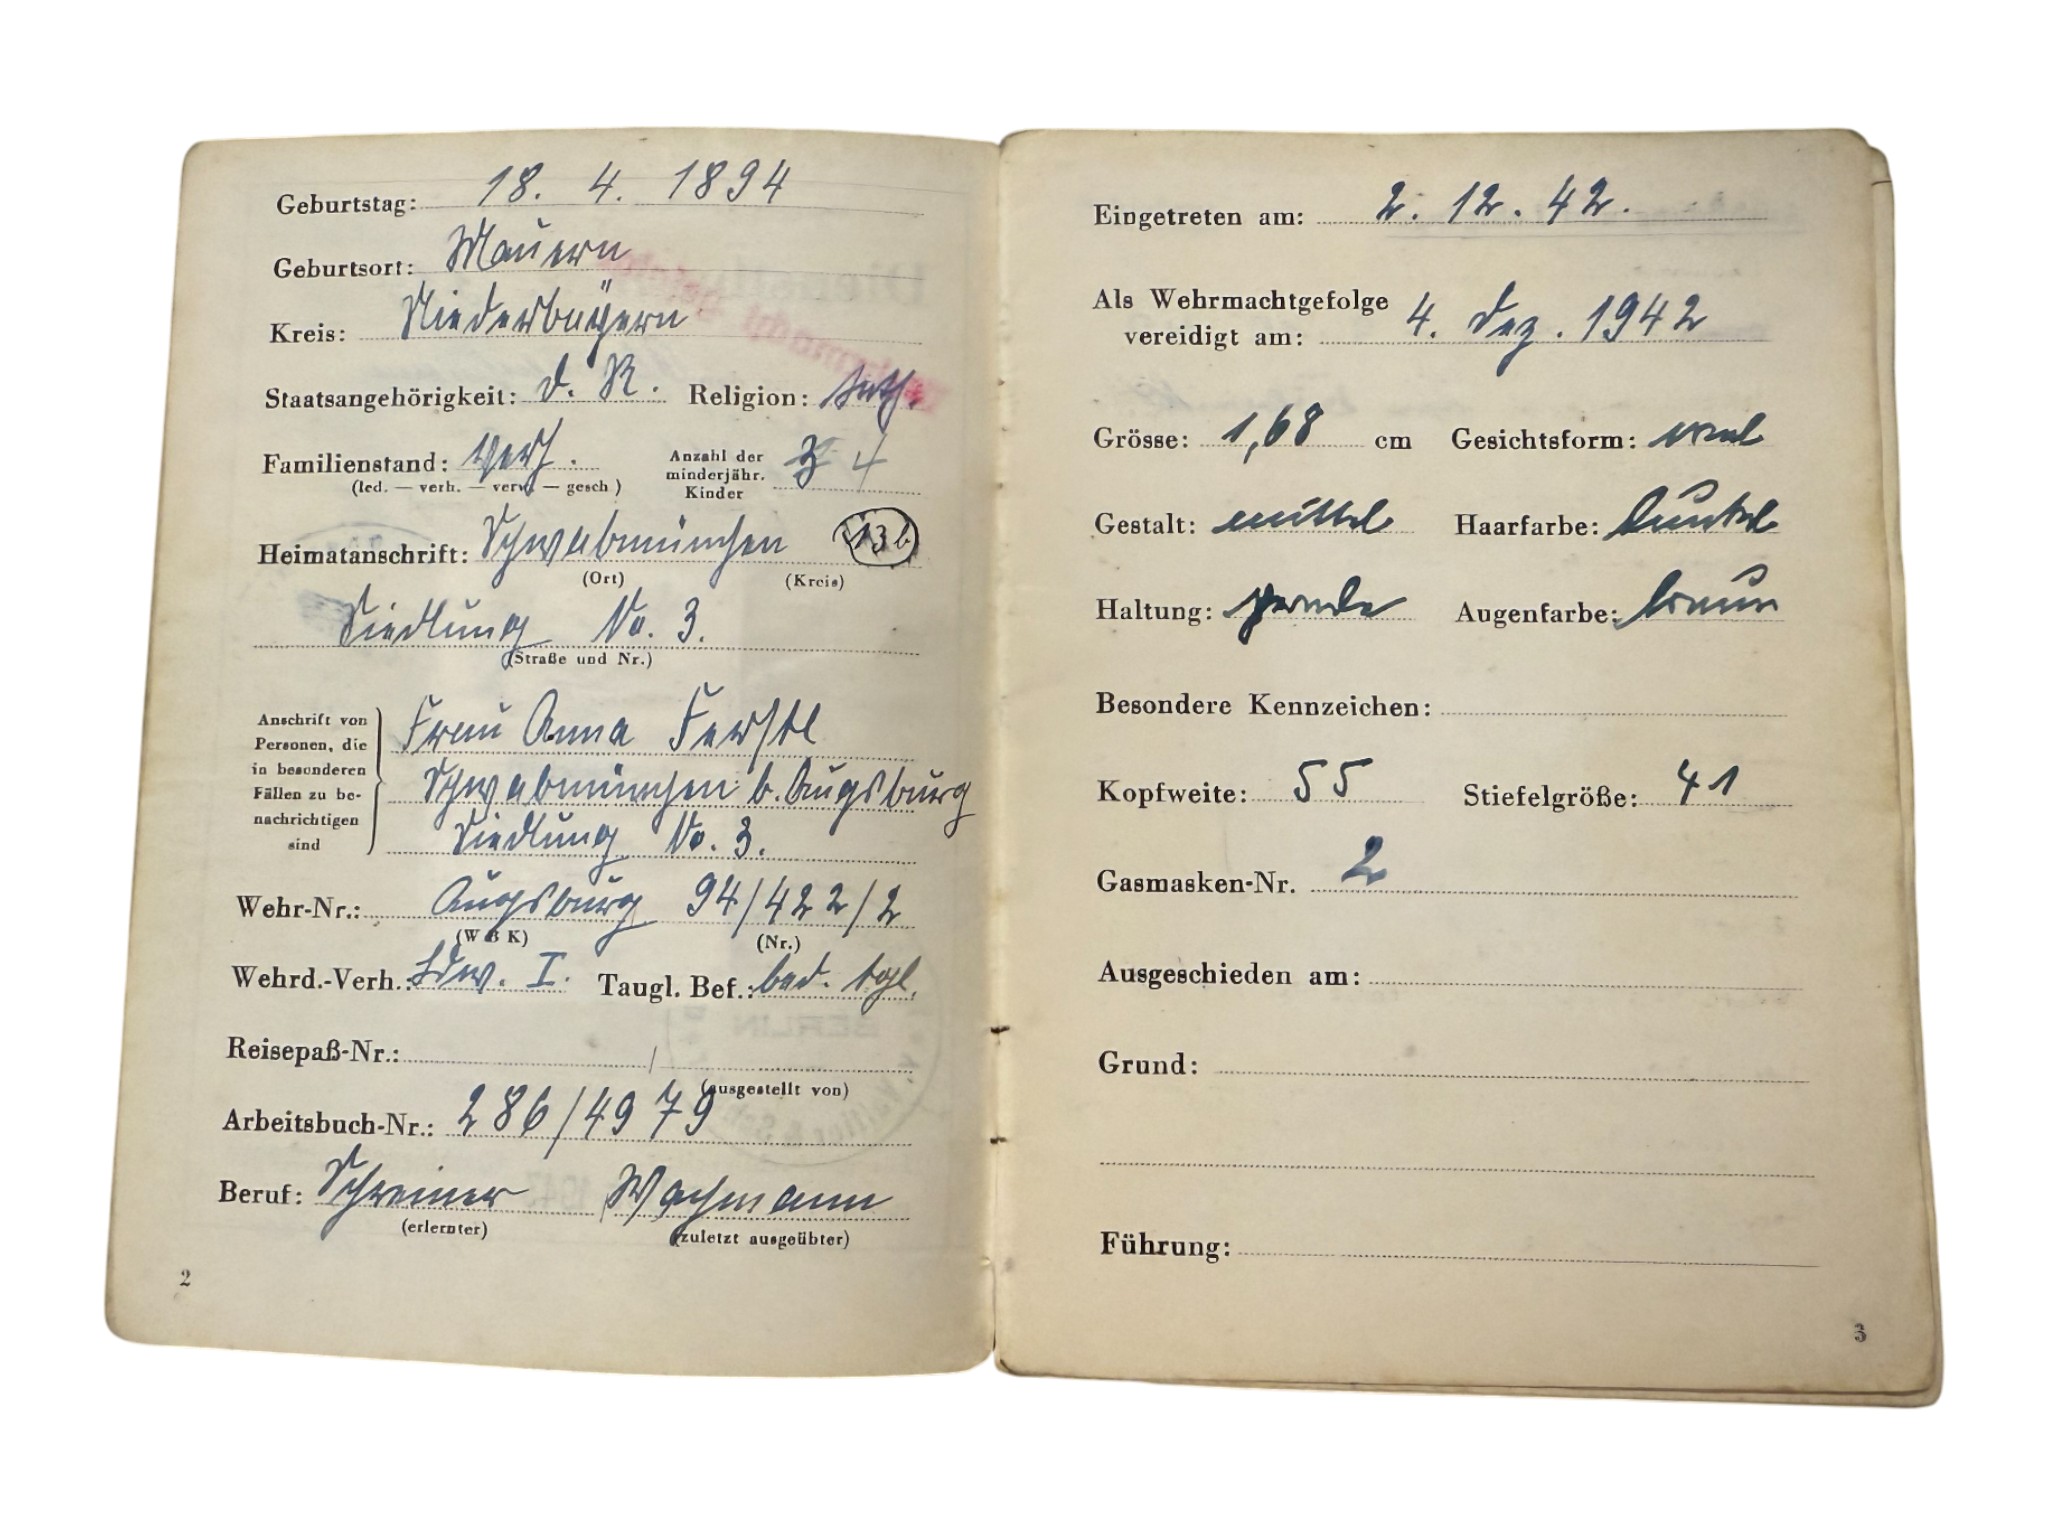 Geburtstag: 18. 4. 1894
Geburtsort: Mauern
Kreis: Niederbayern
Staatsangehörigkeit: d. R. Religion: kath.
Familienstand: verh. Anzahl der minderjähr. Kinder 3 4
(led. — verh. — verw. — gesch)
Heimatanschrift: Schwabmünchen 13b
(Ort) (Kreis)
Siedlung No. 3.
(Straße und Nr.)
Anschrift von Personen, die in besonderen Fällen zu benachrichtigen sind
Frau Anna Ferstl
Schwabmünchen b. Augsburg
Siedlung No. 3.
Wehr-Nr.: Augsburg 94/422/2
(W B K) (Nr.)
Wehrd.-Verh.: Ldw. I. Taugl. Bef.: bed. tgl.
Reisepaß-Nr.: /
(ausgestellt von)
Arbeitsbuch-Nr.: 286/4979
Beruf: Schreiner Wachmann
(erlernter) (zuletzt ausgeübter)
2
Eingetreten am: 2. 12. 42.
Als Wehrmachtgefolge
vereidigt am: 4. Dez. 1942
Grösse: 1,68 cm Gesichtsform: oval
Gestalt: mittel Haarfarbe: dunkel
Haltung: gerade Augenfarbe: braun
Besondere Kennzeichen:
Kopfweite: 55 Stiefelgröße: 41
Gasmasken-Nr. 2
Ausgeschieden am:
Grund:
Führung:
3